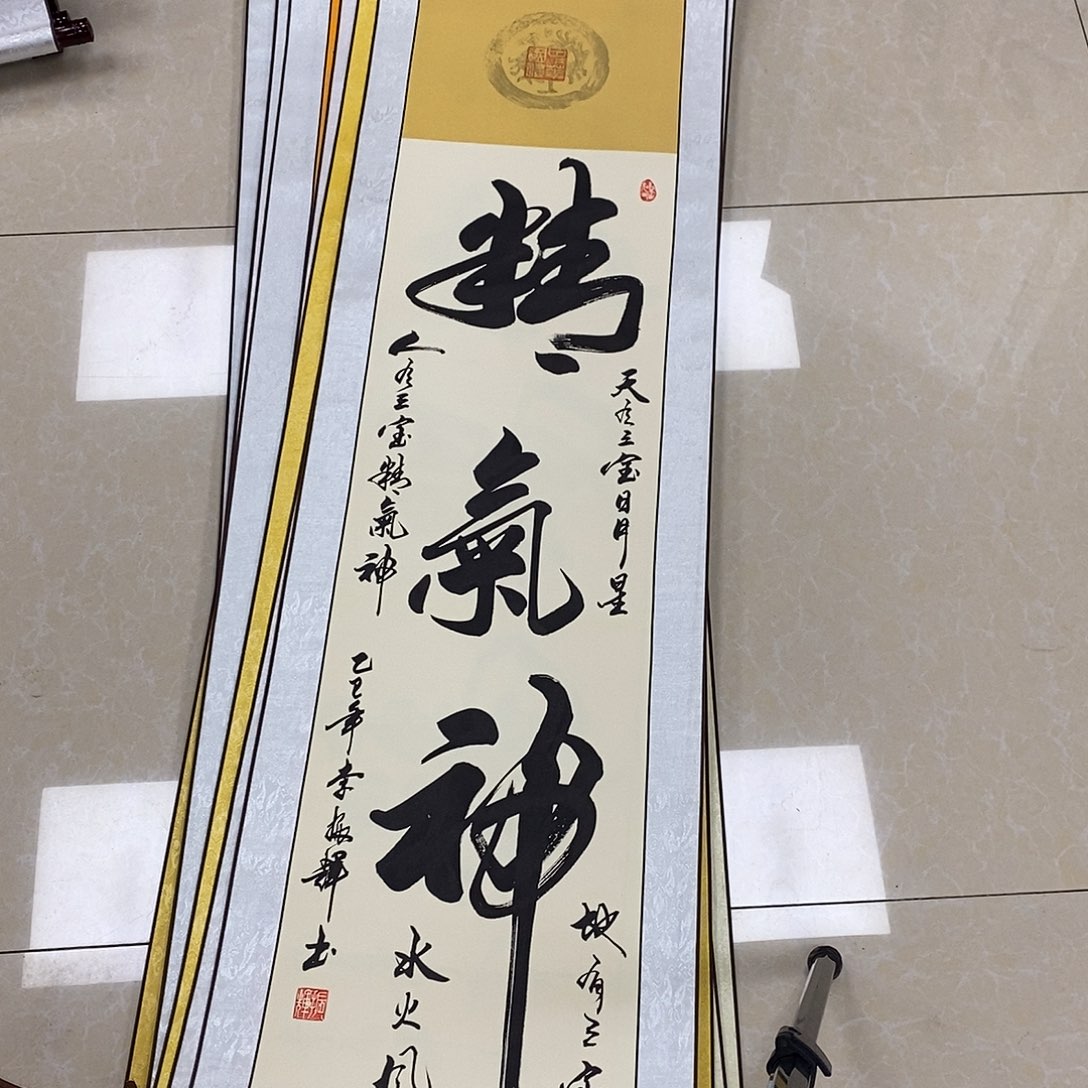 精氣神
天有三宝日月星
地有三宝
水火风
人有三宝精氣神
乙巳年李振輝书
振輝